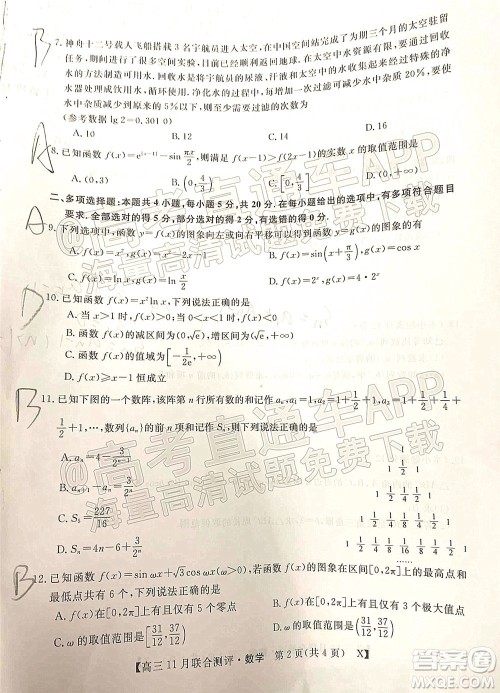 B
7. 神舟十二号载人飞船搭载3名宇航员进入太空,在中国空间站完成了为期三个月的太空驻留
任务,期间进行了很多空间实验,目前已经顺利返回地球.在太空中水资源有限,要通过回收
水的方法制造可用水,回收水是将宇航员的尿液、汗液和太空中的水收集起来经过特殊的净
水器处理成饮用水.循环使用.净化水的过程中,每次过滤可减少水中杂质20%,要使
水中杂质减少到原来的5%以下,则至少需要过滤的次数为
(参考数据 lg 2=0.3010)
A. 10 B. 12 C. 14 D. 16
A
8. 已知函数 f(x)=e^{|x-1|}-sin πx/2,则满足 f(x-1)>f(2x-1)的 x 的取值范围是
A. (0,3) B. (0,4/3) C. [0,4/3] D.
二、多项选择题:本题共4小题,每小题5分,共20分.在每小题给出的选项中,有多项符合题目
要求.全部选对的得5分,部分选对的得2分,有选错的得0分.
A
9. 下列选项中,函数 y=f(x)的图象向左或向右平移可以得到函数 y=g(x)的图象的是
A. f(x)=x²,g(x)=x²+ B. f(x)=sin(x+π/3),g(x)=cos x
C. f(x)=ln x,g(x)=ln x/2 D. f(x)=2^x,g(x)=4·2^x
D
10. 已知函数 f(x)=x²ln x,下列说法正确的是
A. 当 x>1 时,f(x)>0;当 0<x<1 时,f(x)<0
B. 函数 f(x)的减区间为(0,√e),增区间为(√e,+∞)
C. 函数 f(x)的值域为[-1/2e,+∞)
D. f(x)≥x-1 恒成立
B
11. 已知如下图的一个数阵,该阵第 n 行所有数的和记作 a_n,a_1=1,a_2=1+1/2+1,a_3=1+1/2+1/4+
1/2+1,…,数列{a_n}的前 n 项和记作 S_n,则下列说法正确的是
1
1 1/2 1
1 1/2 1/4 1/2 1
1 1/2 1/4 1/8 1/4 1/2 1
1 1/2 1/4 1/8 1/16 1/8 1/4 1/2 1
C. S_5=227/16
D. S_n=4n-6+3/2^n
B
12. 已知函数 f(x)=sin ωx+√3cos ωx(ω>0),若函数 f(x)的图象在区间[0,2π]上的最高点和
最低点共有6个,下列说法正确的是
A. f(x)在[0,2π]上有且只有5个零点 B. f(x)在[0,2π]上有且只有
C. ω的取值范围是[31/12,37/12) D. ω的取值范围是(31/12,37/12]
【高三11月联合测评·数学 第2页(共4页) X】